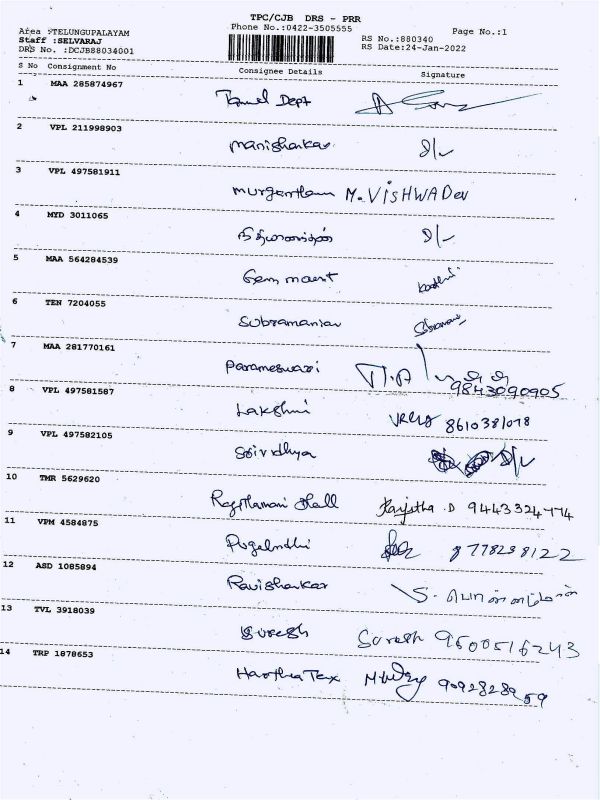 TPC/CJB DRS - PRR
Area :TELUNGUPALAYAM
Phone No.:0422-3505555
Page No.:1
Staff :SELVARAJ
RS No.:880340
DRS No. :DCJB88034001
RS Date:24-Jan-2022
S No Consignment No Consignee Details Signature
1 MAA 285874967
Tamil Dept
2 VPL 211998903
Manishankar
3 VPL 497581911
M. VISHWA Dev
4 MYD 3011065
5 MAA 564284539
6 TEN 7204055
Subramanian
7 MAA 281770161
Parameswari
9843090905
8 VPL 497581587
Lakshmi 8610381078
9 VPL 497582105
Srividhya
10 TMR 5629620
Ranjitha D 9443324774
11 VPM 4584875
Pugalendhi 8778238122
12 ASD 1085894
Ravishankar S.
13 TVL 3918039
Suresh Suresh 9500516243
14 TRP 1878653
Haritha Tex 9092828959